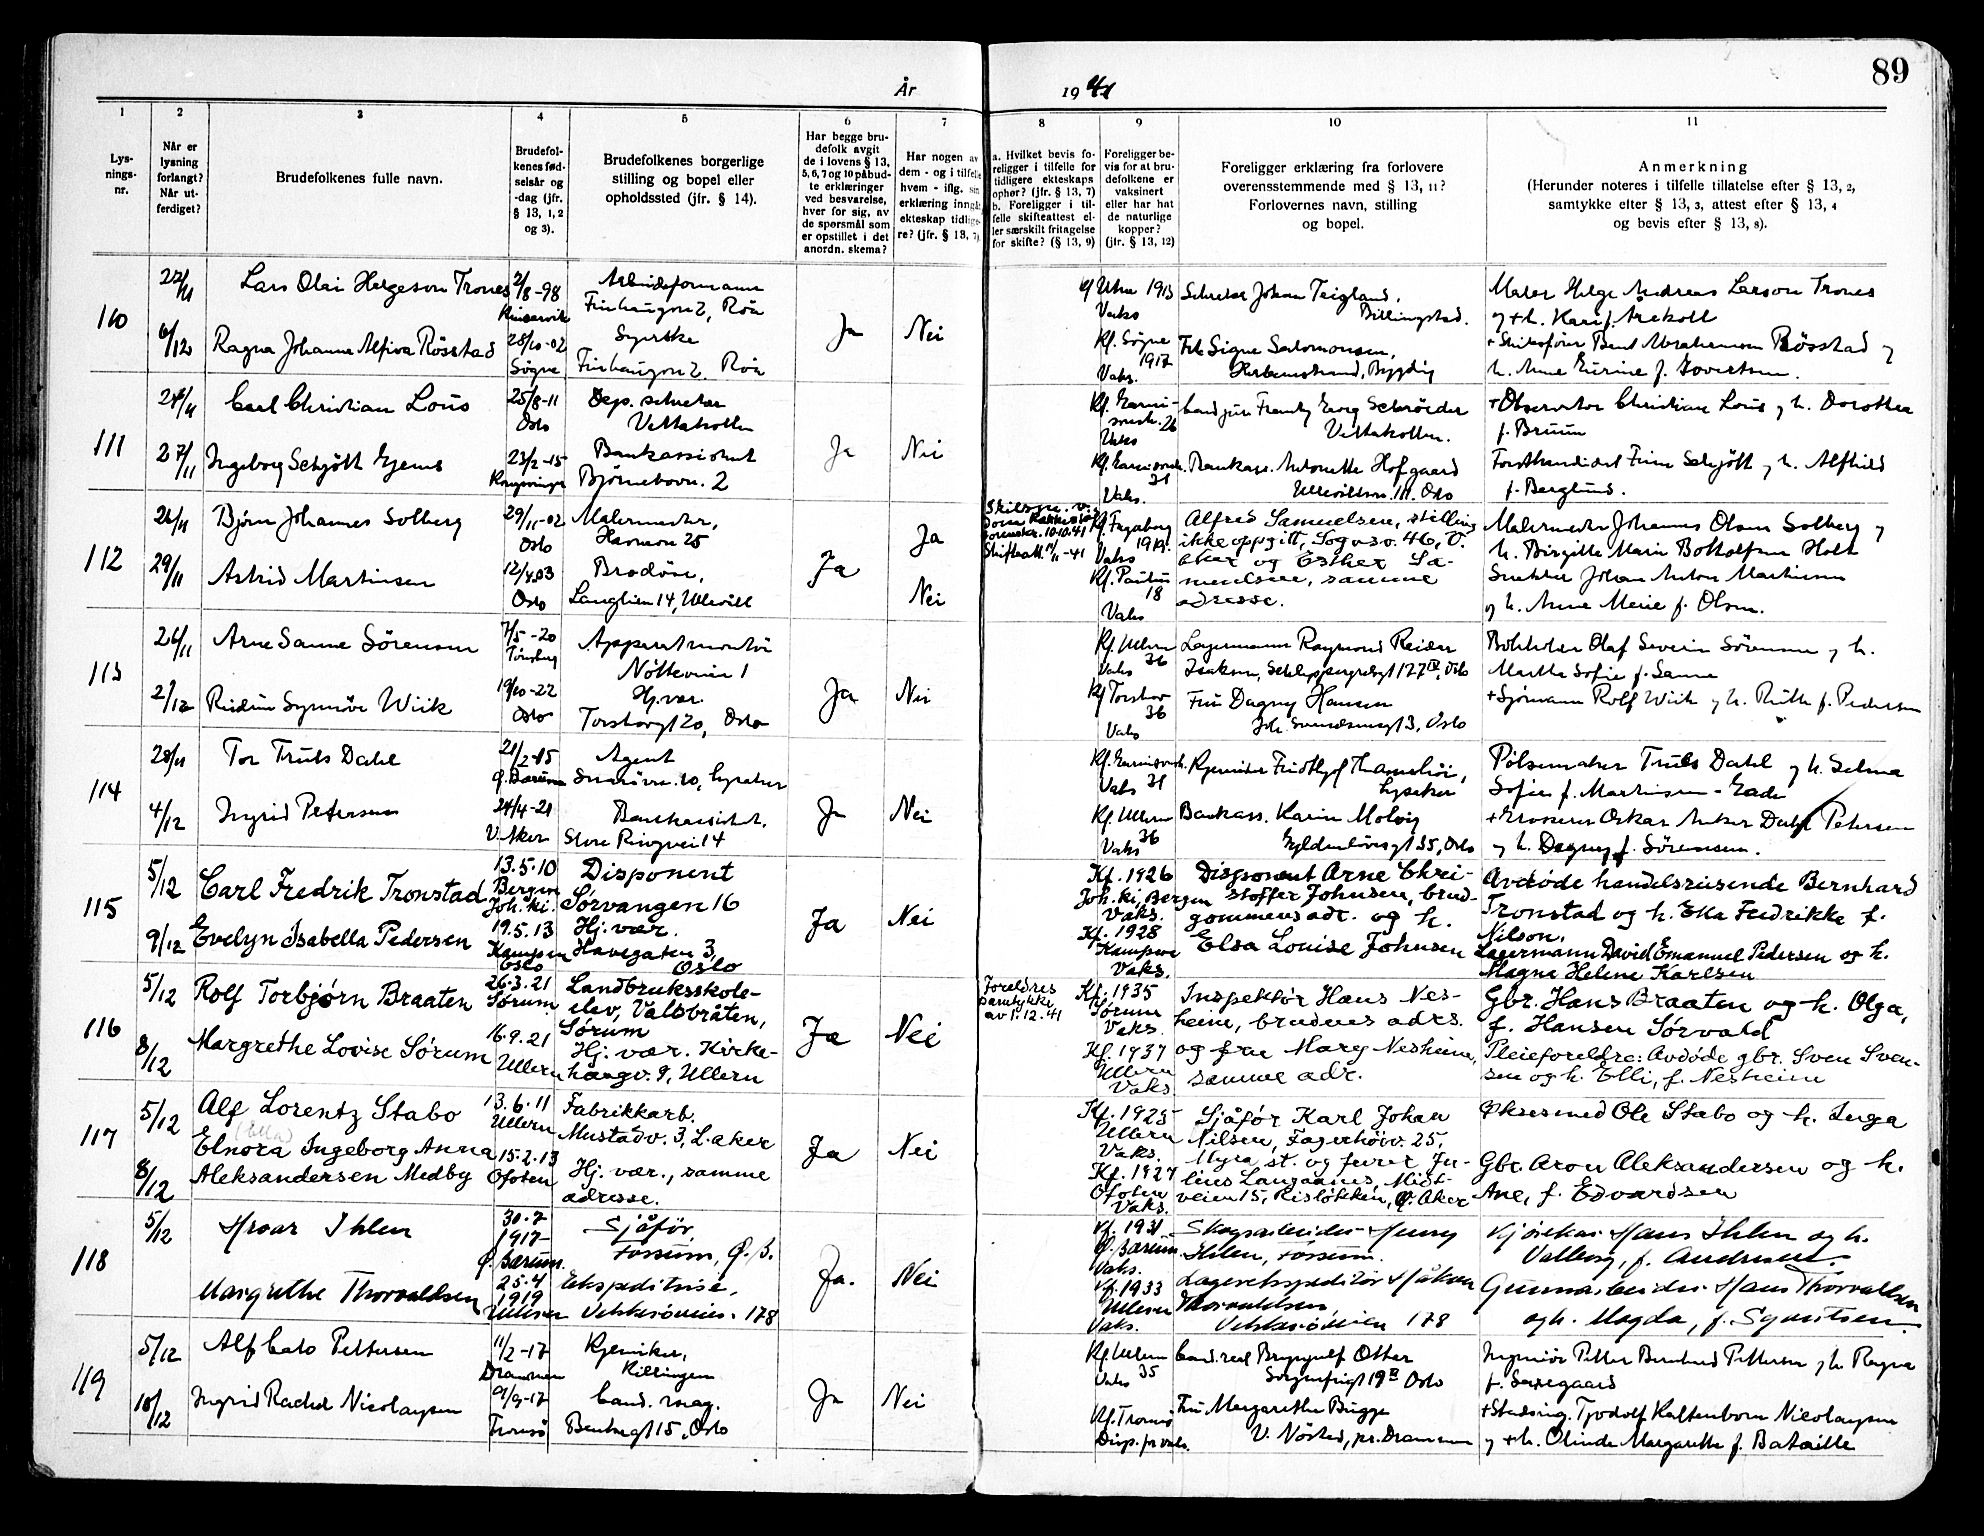 89
År 1941
1
2
3
4
5
6
7
8
9
10
11
Lys-
nings-
nr.
Når er
lysning
forlangt?
Når ut-
ferdiget?
Brudefolkenes fulle navn.
Brudefol-
kenes fød-
selsår og
-dag (jfr.
§ 13, 1, 2
og 3).
Brudefolkenes borgerlige
stilling og bopel eller
opholdssted (jfr. § 14).
Har begge bru-
defolk avgit
de i lovens § 13,
5, 6, 7 og 10 påbud-
te erklæringer
ved besvarelse,
hver for sig, av
de spørsmål som
er opstillet i det
anordn. skema?
Har nogen av
dem - og i tilfelle
hvem - iflg. sin
erklæring inngåt
ekteskap tidlige-
re? (jfr. § 13, 7)
a. Hvilket bevis fo-
religger i tilfelle for
tidligere ekteskaps
ophør? (jfr. § 13, 7)
b. Foreligger i til-
felle skifteattest el-
ler særskilt fritagelse
for skifte? (§ 13, 9)
Foreligger be-
vis for at bru-
defolkene er
vaksinert
eller har hat
de naturlige
kopper?
(jfr. § 13, 12)
Foreligger erklæring fra forlovere
overensstemmende med § 13, 11?
Forlovernes navn, stilling
og bopel.
Anmerkning
(Herunder noteres i tilfelle tillatelse efter § 13, 2,
samtykke efter § 13, 3, attest efter § 13, 4
og bevis efter § 13, 8).
110
Lars Olai Helgeson Trones
2/8-98
Arbeidsformann
Ja
Nei
Utne 1913
Vaks
Sekretær Johan Teigland,
Billingstad.
Maler Helge Andreas Larson Trones
6/12
Ragna Johanne Røsstad
28/10-02
Søgne
Syerske
Kf. Søgne
1917
Vaks.
Frk Signe Salomonsen,
111
27/11
Carl Christian Lous
25/8-11
Oslo
Dep. sekretær
Vettakollen
Ja
Nei
Vaks
Vettakollen.
+ Observator Christian Lous og h. Dorothea
f. Bruun
27/11
Ingeborg Schjøtt Gjems
23/2-15
Bankassistent
Bjørnebovn. 2
Vaks.
Bankass. Antonette Hofgaard
Ullevålsvn. 111. Oslo
f. Berglund.
112
26/11
Bjørn Johannes Solberg
29/11-02
Oslo
Malermester,
Havnevn 25
Ja
Ja
Skifteatt. 11/11-41
Kf. Fagerborg
Vaks
Alfred Samuelsen, stilling
ikke oppgitt, Sognsv. 46, V.
Aker og Esther Sa-
muelsen, samme
adresse.
Malermester Johannes Olsen Solberg og
h. Birgitte Marie Botholfsen Holt
29/11
Astrid Martinsen
12/4 03
Oslo
Brodøse,
Langlien 14, Ullevål
Nei
Kf. Paulus
18
Vaks
Snekker Johan Anton Martinsen
og h. Anne Marie f. Olsen.
113
26/11
Arne Sanne Sørensen
7/5-20
Tønsberg
Apparatmontør
Nøtteveien 1
Ja
Nei
Kf Ullern
Vaks 36
Lagermann Raymond Reidar
Isaksen, Schleppegrellsgt 27 IV, Oslo
Bokholder Olaf Severin Sørensen og h.
Martha Sofie f. Sanne
2/12
Reidun Synnøve Wiik
19/10-22
Oslo
Hj.vær.
Torshovgt 20, Oslo
Kf Torshov
36
Vaks
Fru Dagny Hansen
Joh. Svendsensgt 3, Oslo
+ Sjømann Rolf Wiik og h. Ruth f. Pedersen
114
28/11
Tor Truls Dahl
21/2-15
Ø. Bærum
Agent
Ja
Nei
Vaks 31
Lysaker
Pølsemaker Truls Dahl og h. Selma
Sofie f. Martinsen - Gade
4/12
Ingrid Petersen
24/4-21
V. Aker
Bankassistent.
Store Ringvei 14
Kf. Ullern
Vaks 36
Bankass. Karin Molvig
Gyldenløvesgt 35, Oslo
+ Grosserer Oskar Anker Dahl Petersen
og h. Dagny f. Sørensen.
115
5/12
Carl Fredrik Tronstad
13.5.10
Bergen
Joh. ki.
Disponent
Sørvangen 16
Ja
Nei
Kf. 1926
Joh. ki, Bergen
Vaks.
Disponent Arne Chri-
stoffer Johnsen, brud-
gommens adr. og h.
Elsa Louise Johnsen
Avdøde handelsreisende Bernhard
Tronstad og h. Ella Fredrikke f.
Nilson.
9/12
Evelyn Isabella Pedersen
19.5.13
Kampen
Oslo
Hj. vær.
Havegaten 3,
Oslo
Kf. 1928
Kampen
Vaks.
Lagermann David Emanuel Pedersen og h.
Magna Helene Karlsen
116
5/12
Rolf Torbjørn Braaten
26.3.21
Sørum
Landbruksskole-
elev, Valsbråten,
Sørum
Ja
Nei
Foreldres
samtykke
av 1.12.41
Kf. 1935
Sørum
Vaks.
Inspektør Hans Nes-
heim, brudens adrs.
og frue Mary Nesheim,
samme adr.
Gbr. Hans Braaten og h. Olga,
f. Hansen Sørvald
8/12
Margrethe Lovise Sørum
16.9.21
Ullern
Hj. vær. Kirke-
haugv. 9, Ullern
Kf. 1937
Ullern
Vaks
Pleieforeldre: Avdøde gbr. Sven Sven-
sen og h. Elli, f. Nesheim
117
5/12
Alf Lorentz Stabo
13.6.11
Ullern
Fabrikkarb.
Mustadv. 3, L.aker
Ja
Nei
Kf. 1925
Ullern
Vaks.
Sjåfør Karl Johan
Nilsen, Fagerhøiv. 25,
Myra st. og fruen Ju-
lius Langaanes, Midt-
veien 15, Risløkken, Ø. Aker
Eksersmed Ole Stabo og h. Inga
8/12
(Ella)
Elnora Ingeborg Anna
Aleksandersen Medby
15.2.13
Ofoten
Hj. vær., samme
adresse.
Kf. 1927
Ofoten
Vaks.
Gbr. Aron Aleksandersen og h.
Ane, f. Edvardsen
118
5/12
Hroar Ihlen
30.7
1917
Ø. Bærum.
Sjåfør,
Fossum, Ø. B.
Ja.
Nei
Kf. 1931
Ø. Bærum.
Vaks.
Skogsarbeider Henry
Ihlen, Fossum.
Kjørekar Hans Ihlen og h.
Valborg, f. Andersen.
Margrethe Thorvaldsen
25.4
1919
Ullern
Ekspeditrise,
Vekkerøveien 178
Kf. 1933
Ullern
Vaks.
Lagerekspeditør Håkon
Thorvaldsen,
Vekkerøveien 178
Gummiarbeider Hans Thorvaldsen
og h. Magda, f. Syvertsen.
119
5/12
Alf Cato Pettersen
11/2-17
Drammen
Kjemiker,
Killingen
Ja
Nei
Kf Ullern
Vaks 35
Cand. real Brynjulf Ottar
Sorgenfrigt 19 B Oslo
Ingeniør Petter Bernhard Pettersen og h Ragna
10/12
Ingrid Rachel Nicolaysen
9/9-17
Tromsø
Cand. mag.
15, Oslo
Kf. Tromsø
Disp. fr vaks.
Fru Margarethe Bugge
V. Nøsted, pr. Drammen
+ Stadsing. Tjodolf Kaltenborn Nicolaysen
og + h. Olinde Margarethe f. Bataille